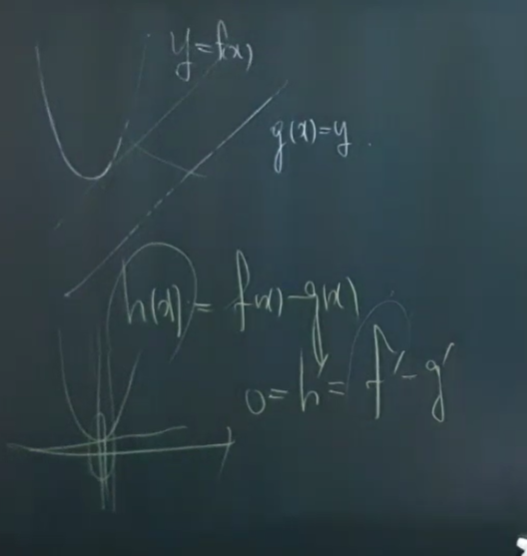 y=f(x)
g(x)=y.
h(x)=f(x)-g(x)
0=h'=f'-g'